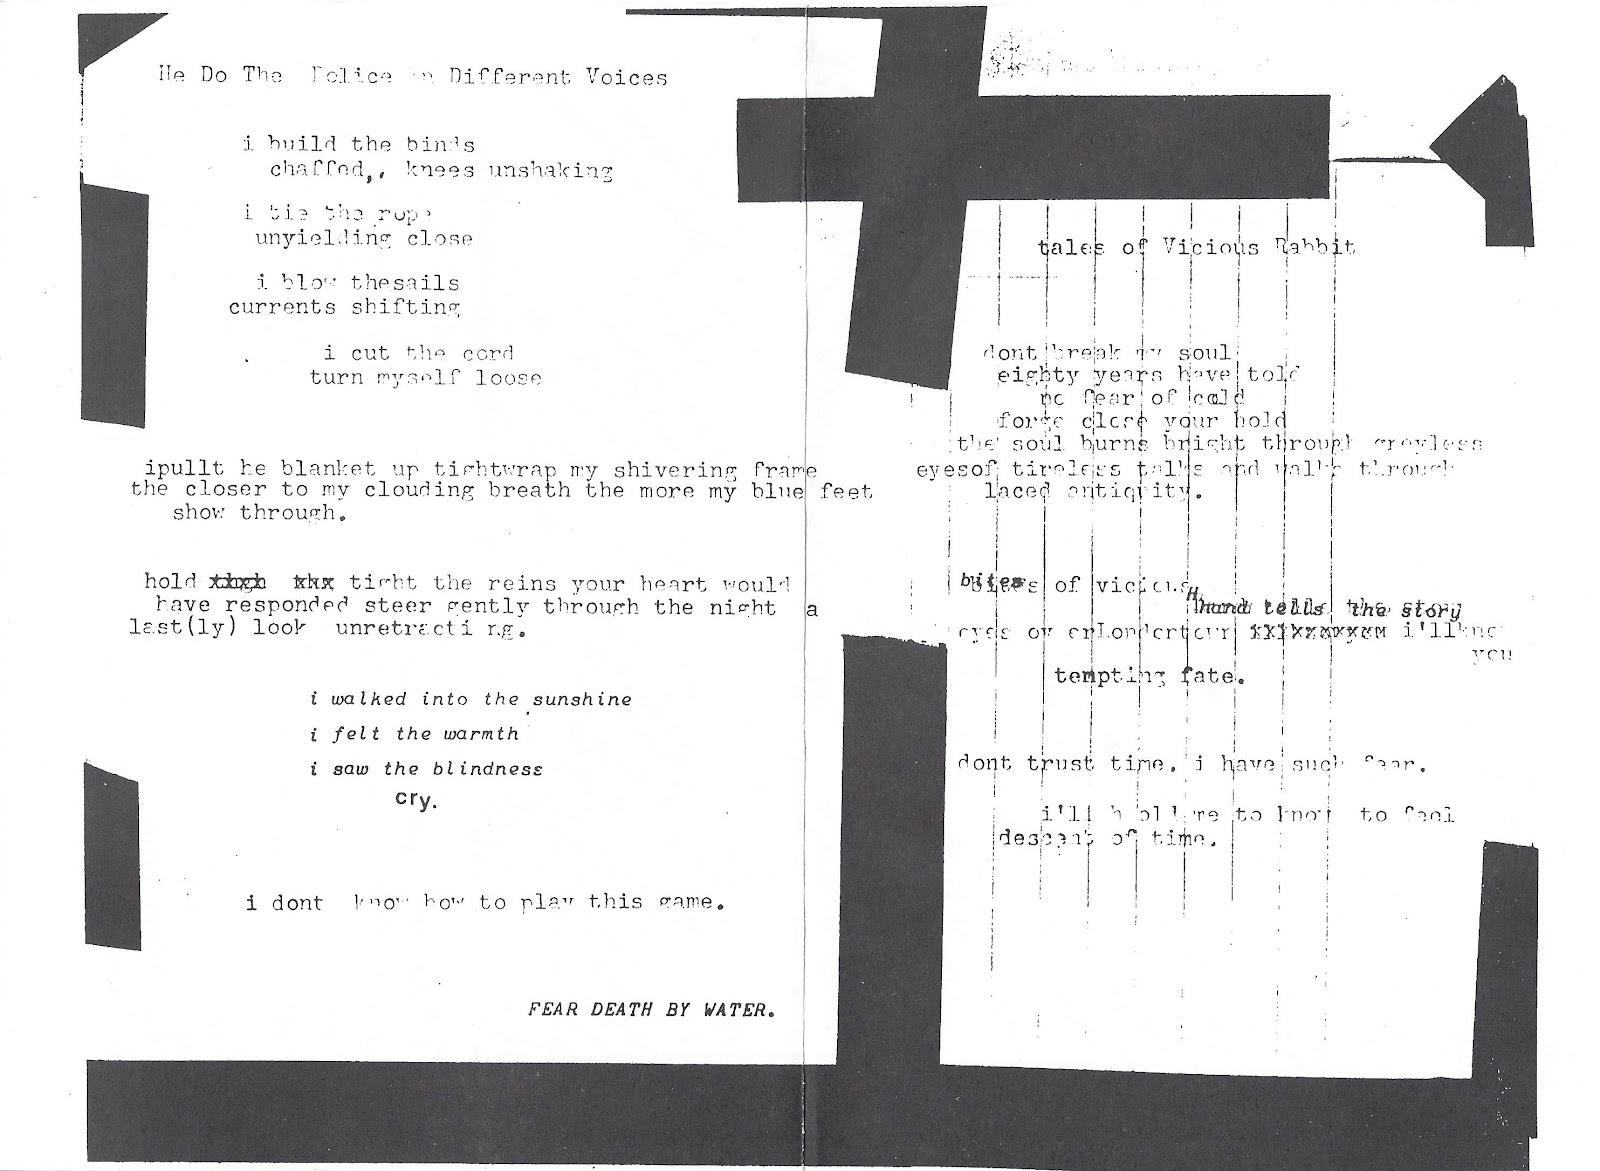 He Do The Police in Different Voices
i build the binds
chaffed,, knees unshaking
i tie the rope
unyielding close
i blow thesails
currents shifting
i cut the cord
turn myself loose
ipullt he blanket up tightwrap my shivering frame
the closer to my clouding breath the more my blue feet
show through.
hold tight the reins your heart would
have responded steer gently through the night a
last(ly) look unretracti ng.
i walked into the sunshine
i felt the warmth
i saw the blindness
cry.
i dont know how to play this game.
FEAR DEATH BY WATER.
tales of Vicious Rabbit
dont break my soul
eighty years have told
no fear of cold
forge close your hold
the soul burns bright through greyless
eyesof tireless talks and walks through
laced antiquity.
bites of vicious
hand tells the story
eyes i'll
you
tempting fate.
dont trust time. i have such fear.
i'll to know to feel
descent of time.